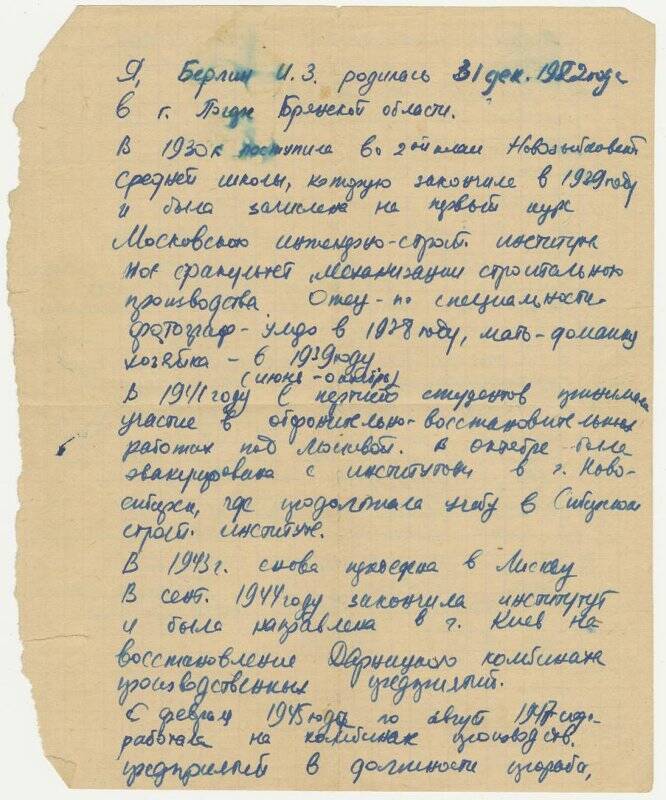 Я, Берлин И. З. родилась 31 дек. 1922 года
в г. Брянской области.
В 1930 г. поступила во 2ой класс Новозыбковской
средней школы, которую закончила в 1939 году
и была зачислена на первый курс
Московского инженерно-строит. института
на факультет механизации строительного
производства. Отец - по специальности
фотограф - умер в 1938 году, мать - домашняя
хозяйка - в 1939 году
(июнь - октябрь)
В 1941 году с партией студентов принимала
участие в оборонительно-восстановительных
работах под Москвой. В октябре была
эвакуирована с институтом в г. Ново-
сибирск, где продолжала учебу в Сибирском
строит. институте.
В 1943 г. снова приехала в Москву
В сент. 1944 году закончила институт
и была направлена в г. Киев на
восстановление Дарницкого комбината
производственных предприятий.
С февраля 1945 года по август 1947 года
работала на комбинате производств.
предприятий в должности прораба,